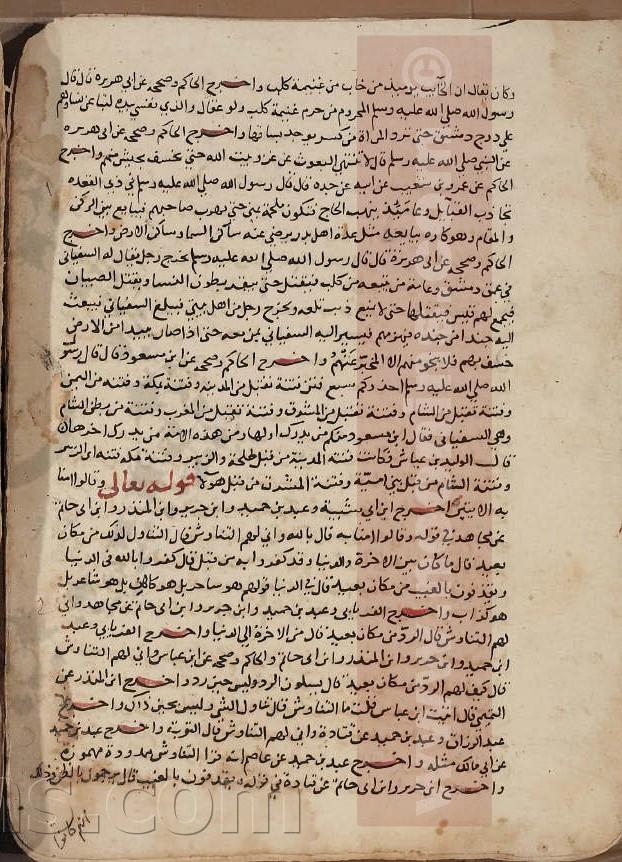 وكان يقال ان الخايب يومئذ من خاب من غنيمة كلب واخرج الحاكم وصححه عن ابي هريرة قال قال
رسول الله صلى الله عليه وسلم المحروم من حرم غنيمة كلب ولو عقال والذي نفسي بيده لتباعن نساوهم
على درج دمشق حتى ترد المراة من كسر يوجد بساقها واخرج الحاكم وصححه عن ابي هريرة
عن النبي صلى الله عليه وسلم قال لا تنتهي البعوث عن غزو بيت الله حتى يخسف بجيش منهم واخرج
الحاكم عن عمرو بن شعيب عن ابيه عن جده قال قال رسول الله صلى الله عليه وسلم في ذي القعده
تحازب القبايل وعامئذ ينهب الحاج فتكون ملحمة بمنى حتى يهرب صاحبهم فيبايع بين الركن
والمقام وهو كاره يبايعه مثل عدة اهل بدر يرضى عنه ساكن السما وساكن الارض واخرج
الحاكم وصححه عن ابي هريرة قال قال رسول الله صلى الله عليه وسلم يخرج رجل يقال له السفياني
في عمق دمشق وعامة من يتبعه من كلب فيقتل حتى يبقر بطون النسا ويقتل الصبيان
فيجمع لهم قيس فيقتلها حتى لا يمنع ذنب تلعه ويخرج رجل من اهل بيتي فيبلغ السفياني فيبعث
اليه جندا من جنده فيهزمهم فيسير اليه السفياني بمن معه حتى اذا صار ببيدا من الارض
خسف بهم فلا ينجو منهم الا المخبر عنهم واخرج الحاكم وصححه عن ابن مسعود قال قال رسول
الله صلى الله عليه وسلم احذركم سبع فتن فتنة تقبل من المدينه وفتنة بمكة وفتنه من اليمن
وفتنة تقبل من الشام وفتنة تقبل من المشرق وفتنة تقبل من المغرب وفتنة من بطن الشام
وهي السفياني فقال ابن مسعود منكم من يدرك اولها ومن هذه الامة من يدرك اخرها قال
قال الوليد بن عياش فكانت فتنه المدينة من قبل طلحة والزبير وفتنة مكة فتنه ابن الزبير
وفتنة الشام من قبل بني امية وفتنة المشرق من قبل هولا قوله تعالى وقالوا امنا
به الايتين اخرج ابن ابي شيبة وعبد بن حميد وابن جرير وابن المنذر وابن ابي حاتم
عن مجاهد في قوله وقالوا امنا به قال بالله واني لهم التناوش قال التناول لذلك من مكان
بعيد قال ما كان بين الاخرة والدنيا وقد كفروا به من قبل قال كفروا بالله في الدنيا
ويقذفون بالغيب من مكان بعيد قال في الدنيا قولهم هو ساحر بل هو كاهن بل هو شاعر بل
هو كذاب واخرج الفريابي وعبد بن حميد وابن جرير وابن ابي حاتم عن مجاهد واني
لهم التناوش قال الرد من مكان بعيد قال من الاخرة الى الدنيا واخرج الفريابي وعبد
ابن حميد وابن جرير وابن المنذر وابن ابي حاتم والحاكم وصححه عن ابن عباس واني لهم التناوش
قال كيف لهم الرد من مكان بعيد قال يسلون الرد وليس حين رد واخرج ابن المنذر عن
التيمي قال اتيت ابن عباس قلت ما التناوش قال تناول الشي وليس بحين ذاك واخرج
عبد الرزاق وعبد بن حميد عن قتادة واني لهم التناوش قال التوبة واخرج عبد بن حميد
عن ابي مالك مثله واخرج عبد بن حميد عن عاصم انه قرا التناوش ممدودة مهموزة
واخرج ابن جرير وابن ابي حاتم عن قتادة في قوله ويقذفون بالغيب قال يرجمون بالظن وذلك
انهم كانوا